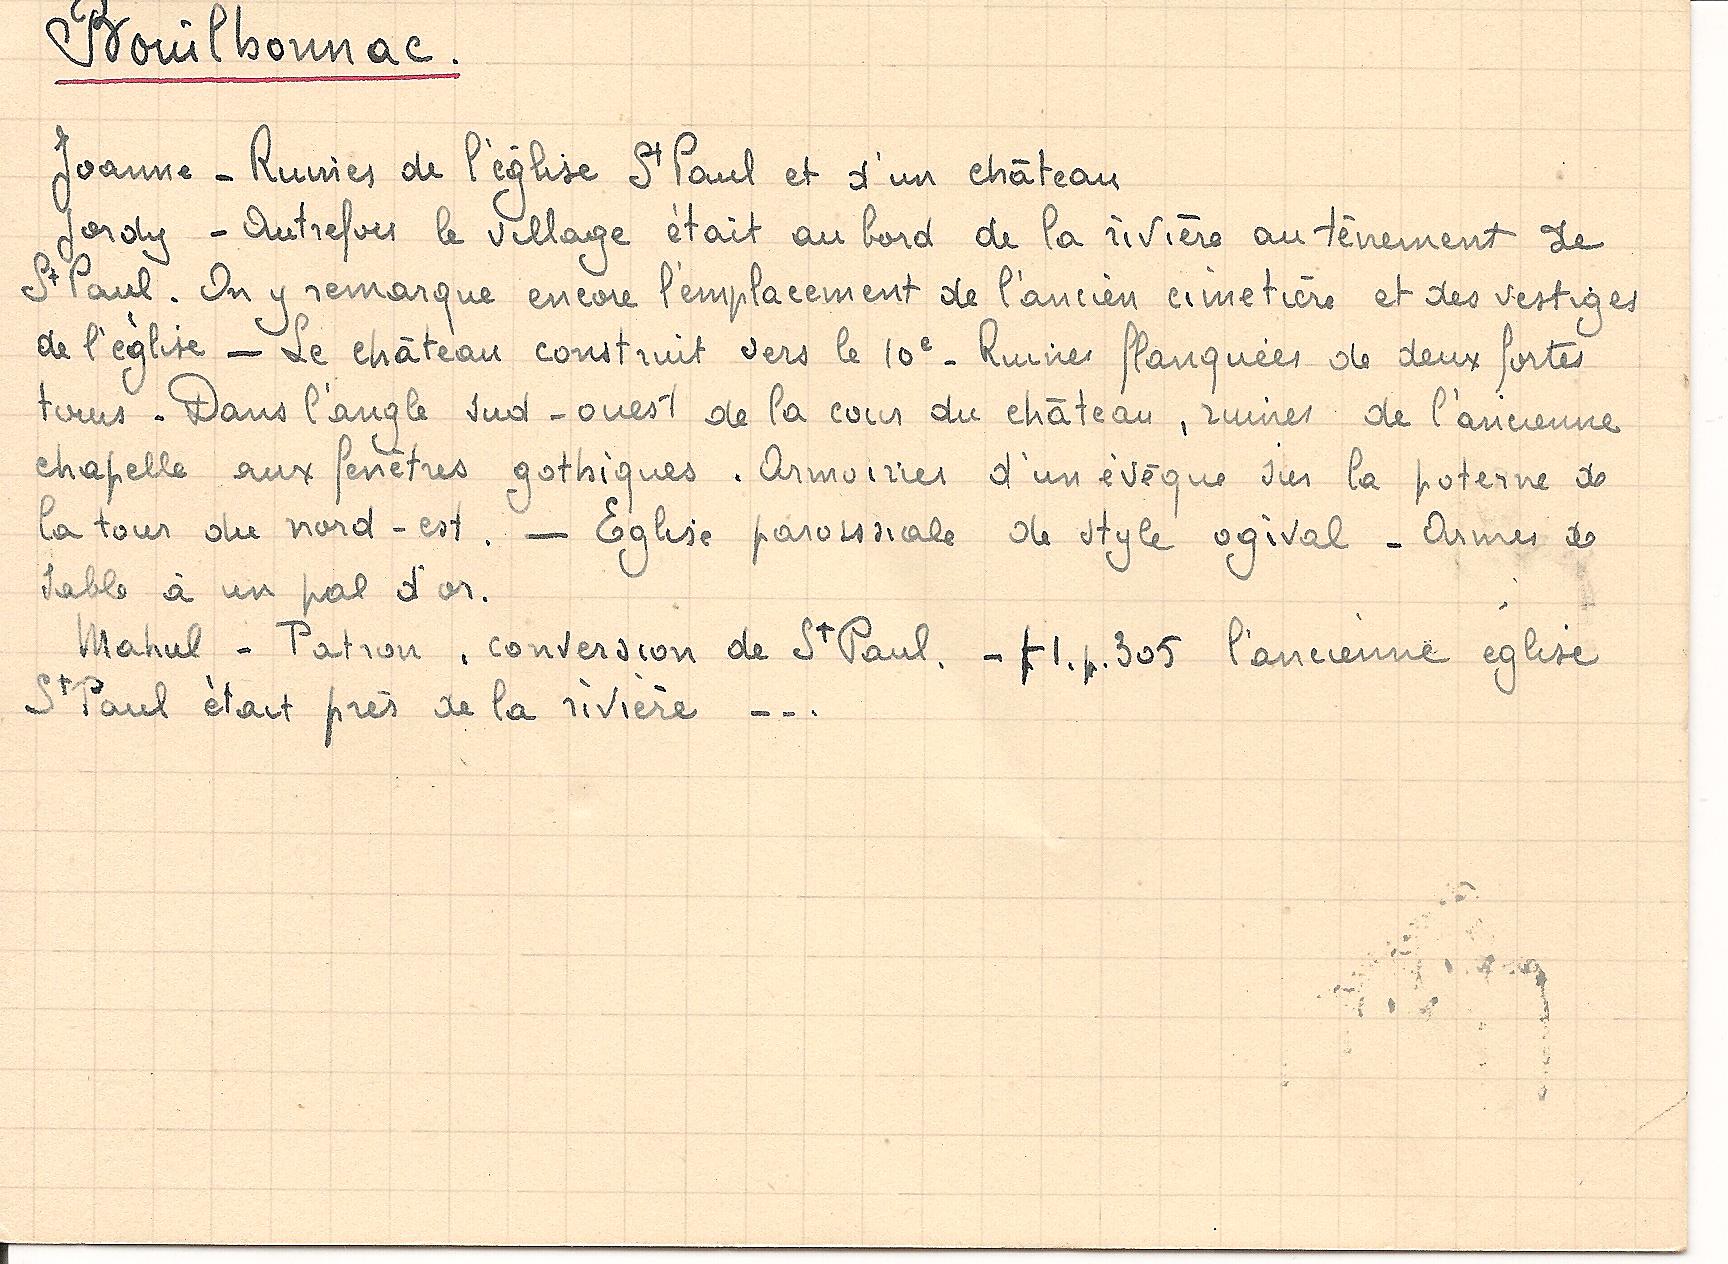 Bouilhonnac.
Joanne - Ruines de l'église St Paul et d'un château
Jordy - Autrefois le village était au bord de la rivière au tènement de
St Paul. On y remarque encore l'emplacement de l'ancien cimetière et des vestiges
de l'église — Le château construit vers le 10e - Ruines flanquées de deux fortes
tours - Dans l'angle sud-ouest de la cour du château, ruines de l'ancienne
chapelle aux fenêtres gothiques. Armoiries d'un évêque sur la poterne de
la tour du nord-est. — Eglise paroissiale de style ogival - Armes de
sable à un pal d'or.
Mahul - Patron, conversion de St Paul. - t 1. p. 305 l'ancienne église
St Paul était près de la rivière ---